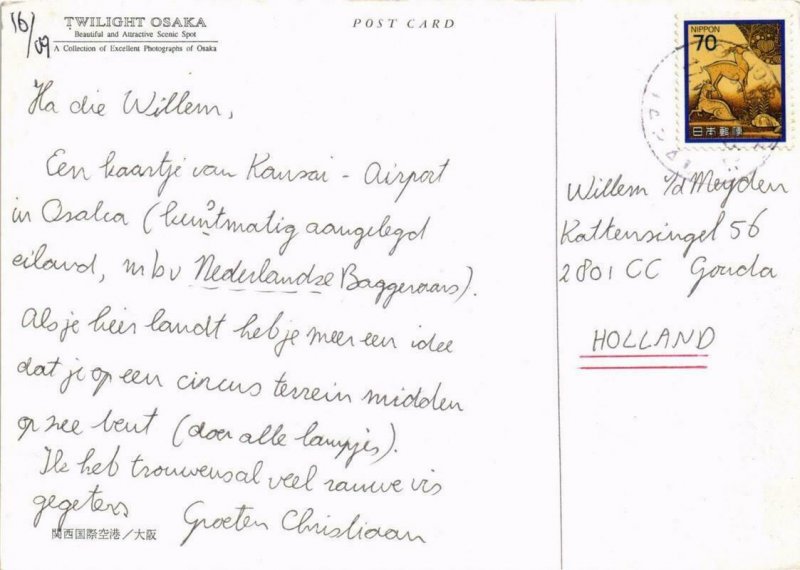 16/09
TWILIGHT OSAKA
Beautiful and Attractive Scenic Spot
A Collection of Excellent Photographs of Osaka
POST CARD
NIPPON
70
日本郵便
Ha die Willem,
Een kaartje van Kansai - Airport
in Osaka (kunstmatig aangelegd
eiland, mbv Nederlandse Baggeraars).
Als je hier landt heb je meer een idee
dat je op een circus terrein midden
op zee bent (door alle lampjes).
Ik heb trouwens al veel rauwe vis
gegeten
Groeten Christiaan
関西国際空港／大阪
Willem v/d Meyden
Kattensingel 56
2801 CC Gouda
HOLLAND